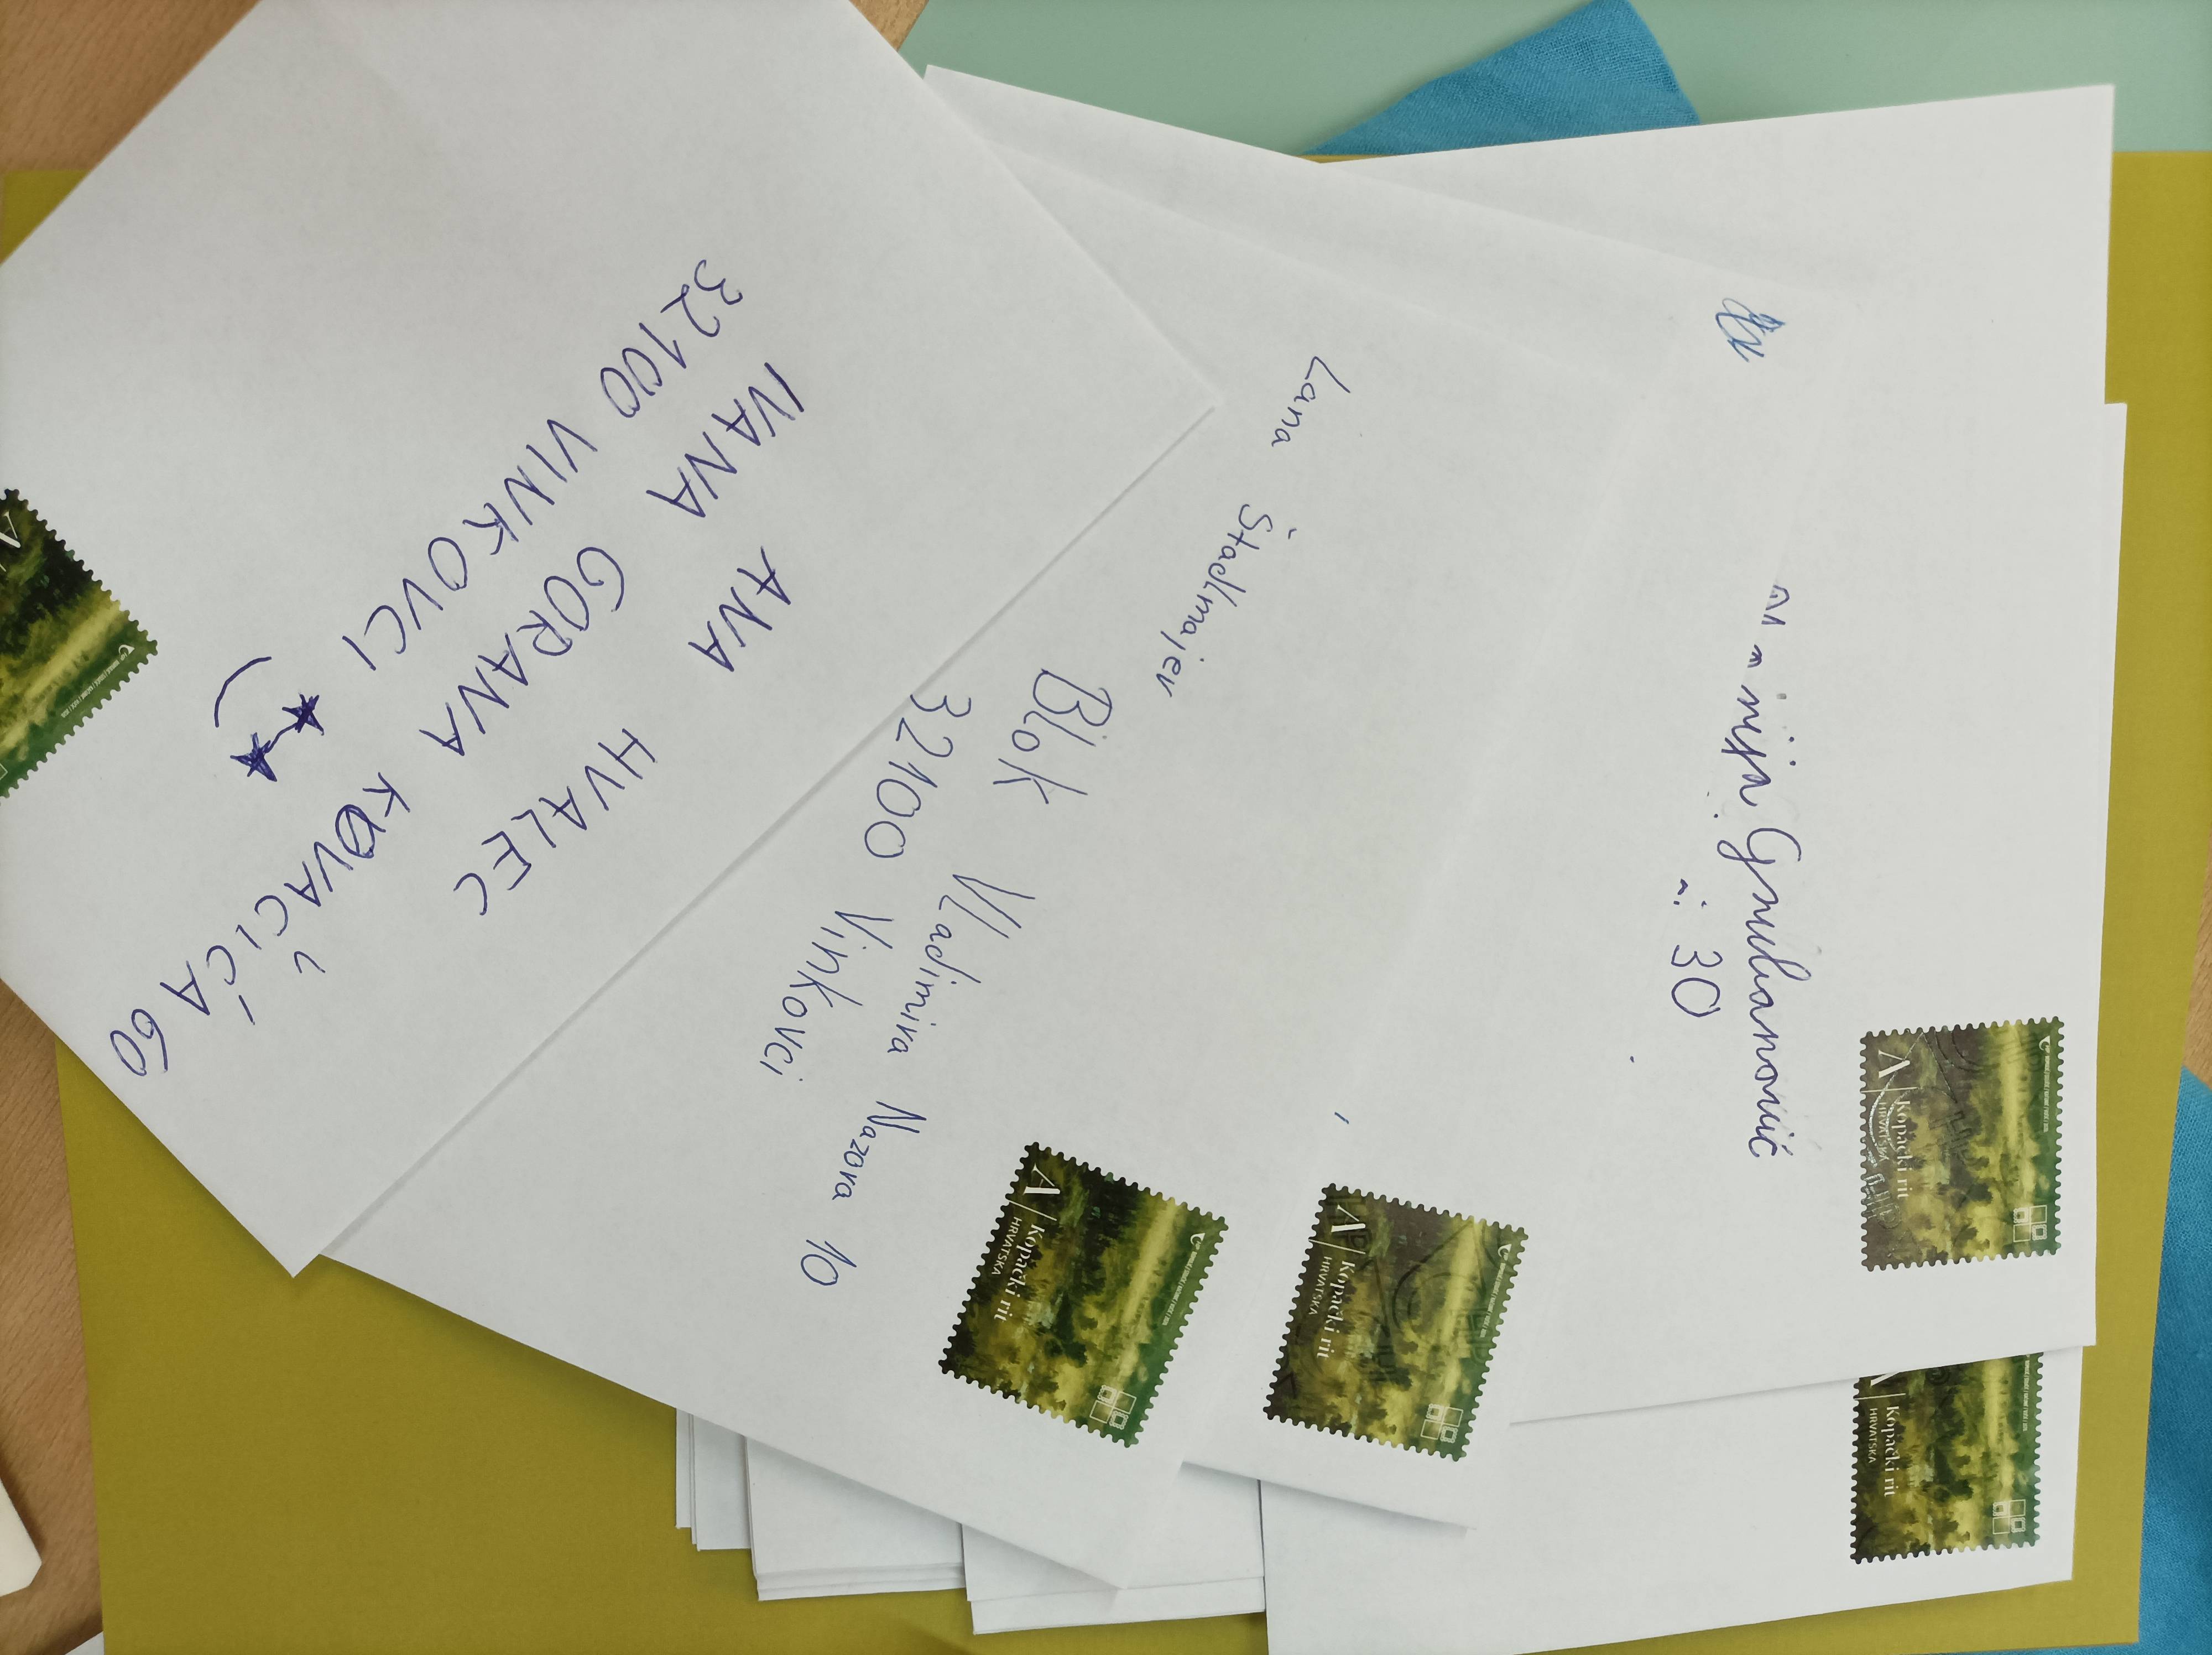 ANA HVALEC
IVANA GORANA KOVAČIĆA 60
32100 VINKOVCI
Lana Štadlmajer
Blok Vladimira Nazora 10
32100 Vinkovci
30
A Kopački rit
HRVATSKA
A Kopački rit
HRVATSKA
A Kopački rit
HRVATSKA
Kopački rit
HRVATSKA